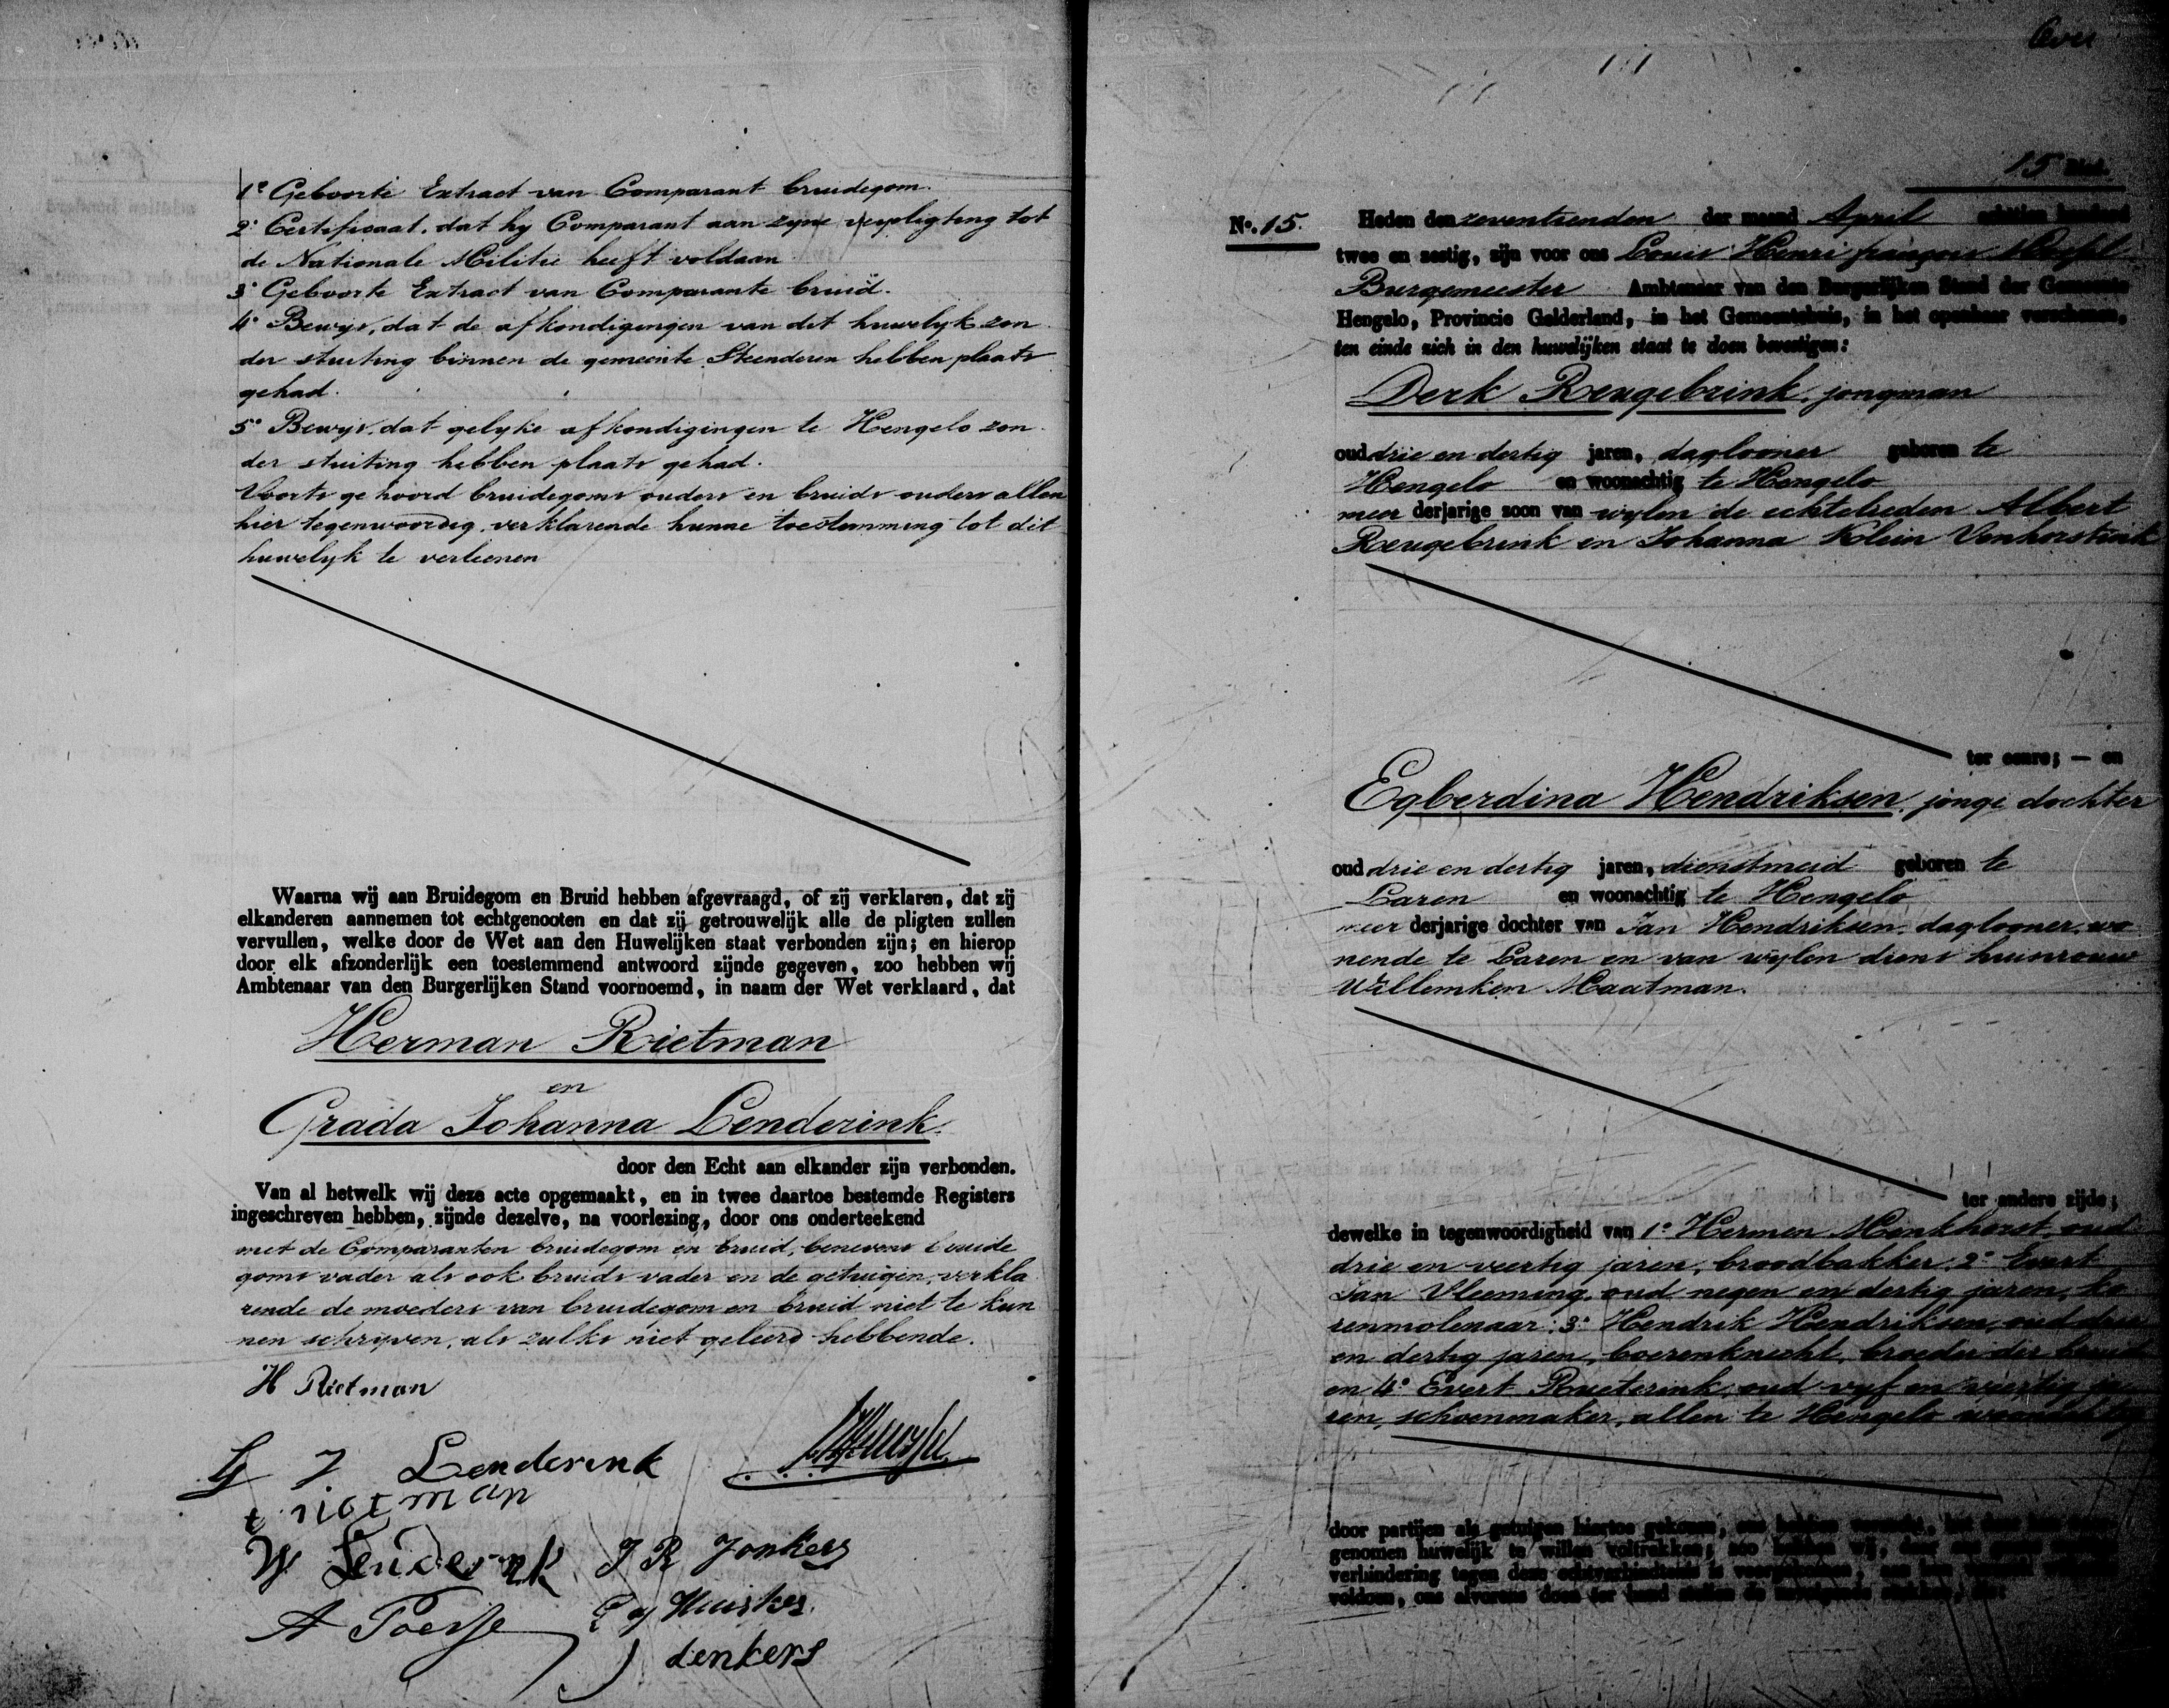 1° Geboorte Extract van Comparant bruidegom.
2° Certificaat, dat hy Comparant aan zyne verpligting tot
de Nationale Militie heeft voldaan
3° Geboorte Extract van Comparante bruid.
4° Bewys, dat de afkondigingen van dit huwelyk zon
der stuiting binnen de gemeente Steenderen hebben plaats
gehad.
5° Bewys, dat gelyke afkondigingen te Hengelo zon
der stuiting hebben plaats gehad.
Voorts gehoord bruidegoms ouders en bruids ouders allen
hier tegenwoordig, verklarende hunne toestemming tot dit
huwelyk te verleenen
Waarna wij aan Bruidegom en Bruid hebben afgevraagd, of zij verklaren, dat zij
elkanderen aannemen tot echtgenooten en dat zij getrouwelijk alle de pligten zullen
vervullen, welke door de Wet aan den Huwelijken staat verbonden zijn; en hierop
door elk afzonderlijk een toestemmend antwoord zijnde gegeven, zoo hebben wij
Ambtenaar van den Burgerlijken Stand voornoemd, in naam der Wet verklaard, dat
Herman Rietman
en
Grada Johanna Lenderink.
door den Echt aan elkander zijn verbonden.
Van al hetwelk wij deze acte opgemaakt, en in twee daartoe bestemde Registers
ingeschreven hebben, zijnde dezelve, na voorlezing, door ons onderteekend
met de Comparanten bruidegom en bruid, benevens bruide
goms vader als ook bruids vader en de getuigen, verkla
rende de moeders van bruidegom en bruid niet te kun
nen schrijven, als zulks niet geleerd hebbende.
H Rietman
G J Lenderink
t rietman
W Lenderink J R Jonkers
A Poesse G J Huiskes
J denkers
Over
15 Blad.
N°. 15.
Heden den zeventienden der maand April achttien honderd
twee en zestig, zijn voor ons Louis Henri françois
Burgemeester Ambtenaar van den Burgerlijken Stand der Gemeente
Hengelo, Provincie Gelderland, in het Gemeentehuis, in het openbaar verschenen,
ten einde zich in den huwelijken staat te doen bevestigen:
Derk Reugebrink, jongman
oud drie en dertig jaren, daglooner geboren te
Hengelo en woonachtig te Hengelo
meer derjarige zoon van wylen de echtelieden Albert
Reugebrink en Johanna Klein Venhorstink
ter eenre; — en
Egberdina Hendriksen, jonge dochter
oud drie en dertig jaren, dienstmeid geboren te
Laren en woonachtig te Hengelo
meer derjarige dochter van Jan Hendriksen, daglooner, wo
nende te Laren en van wylen diens huisvrouw
Willemken Maatman.
ter andere zijde;
dewelke in tegenwoordigheid van 1° Hermen Menkhorst, oud
drie en veertig jaren, broodbakker, 2° Evert
Jan Vleeming, oud negen en dertig jaren, ko
renmolenaar, 3° Hendrik Hendriksen, oud drie
en dertig jaren, boerenknecht, broeder der bruid
en 4° Evert Rueterink, oud vyf en veertig ja
ren, schoenmaker, allen te Hengelo woonachtig
door partijen als getuigen hiertoe gekozen, ons hebben verzocht, het door hen
genomen huwelijk te willen voltrekken; zoo hebben wij, daar ons geene
verhindering tegen deze echtverbindtenis is voorgekomen, aan hun verzoek
voldoen, ons alvorens doen ter hand stellen de navolgende stukken, als: